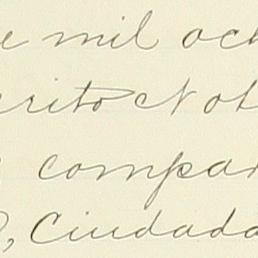 e mil och
crito Not
compar
, Ciudada